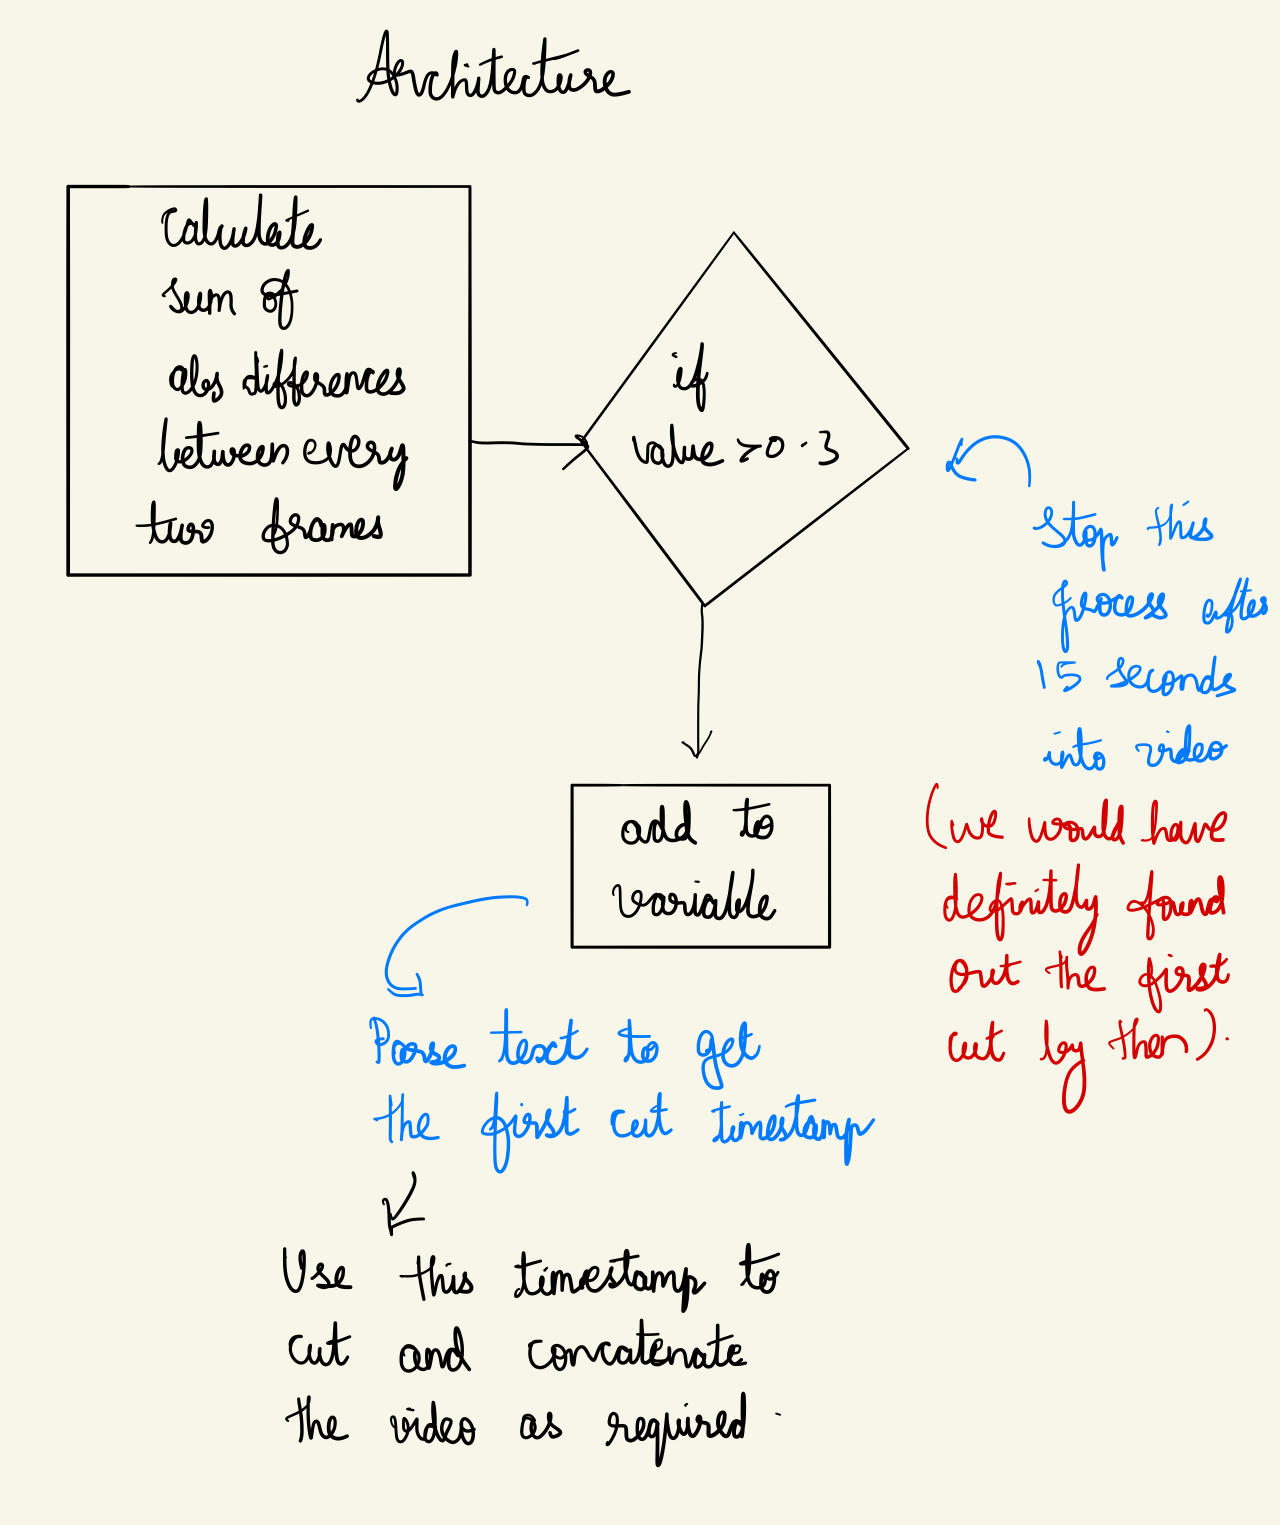 Architecture
Calculate
sum of
abs differences
between every
two frames
if
value > 0.3
Stop this
process after
15 seconds
into video
(we would have
definitely found
out the first
cut by then).
add to
variable
Parse text to get
the first cut timestamp
Use this timestamp to
cut and concatenate
the video as required.